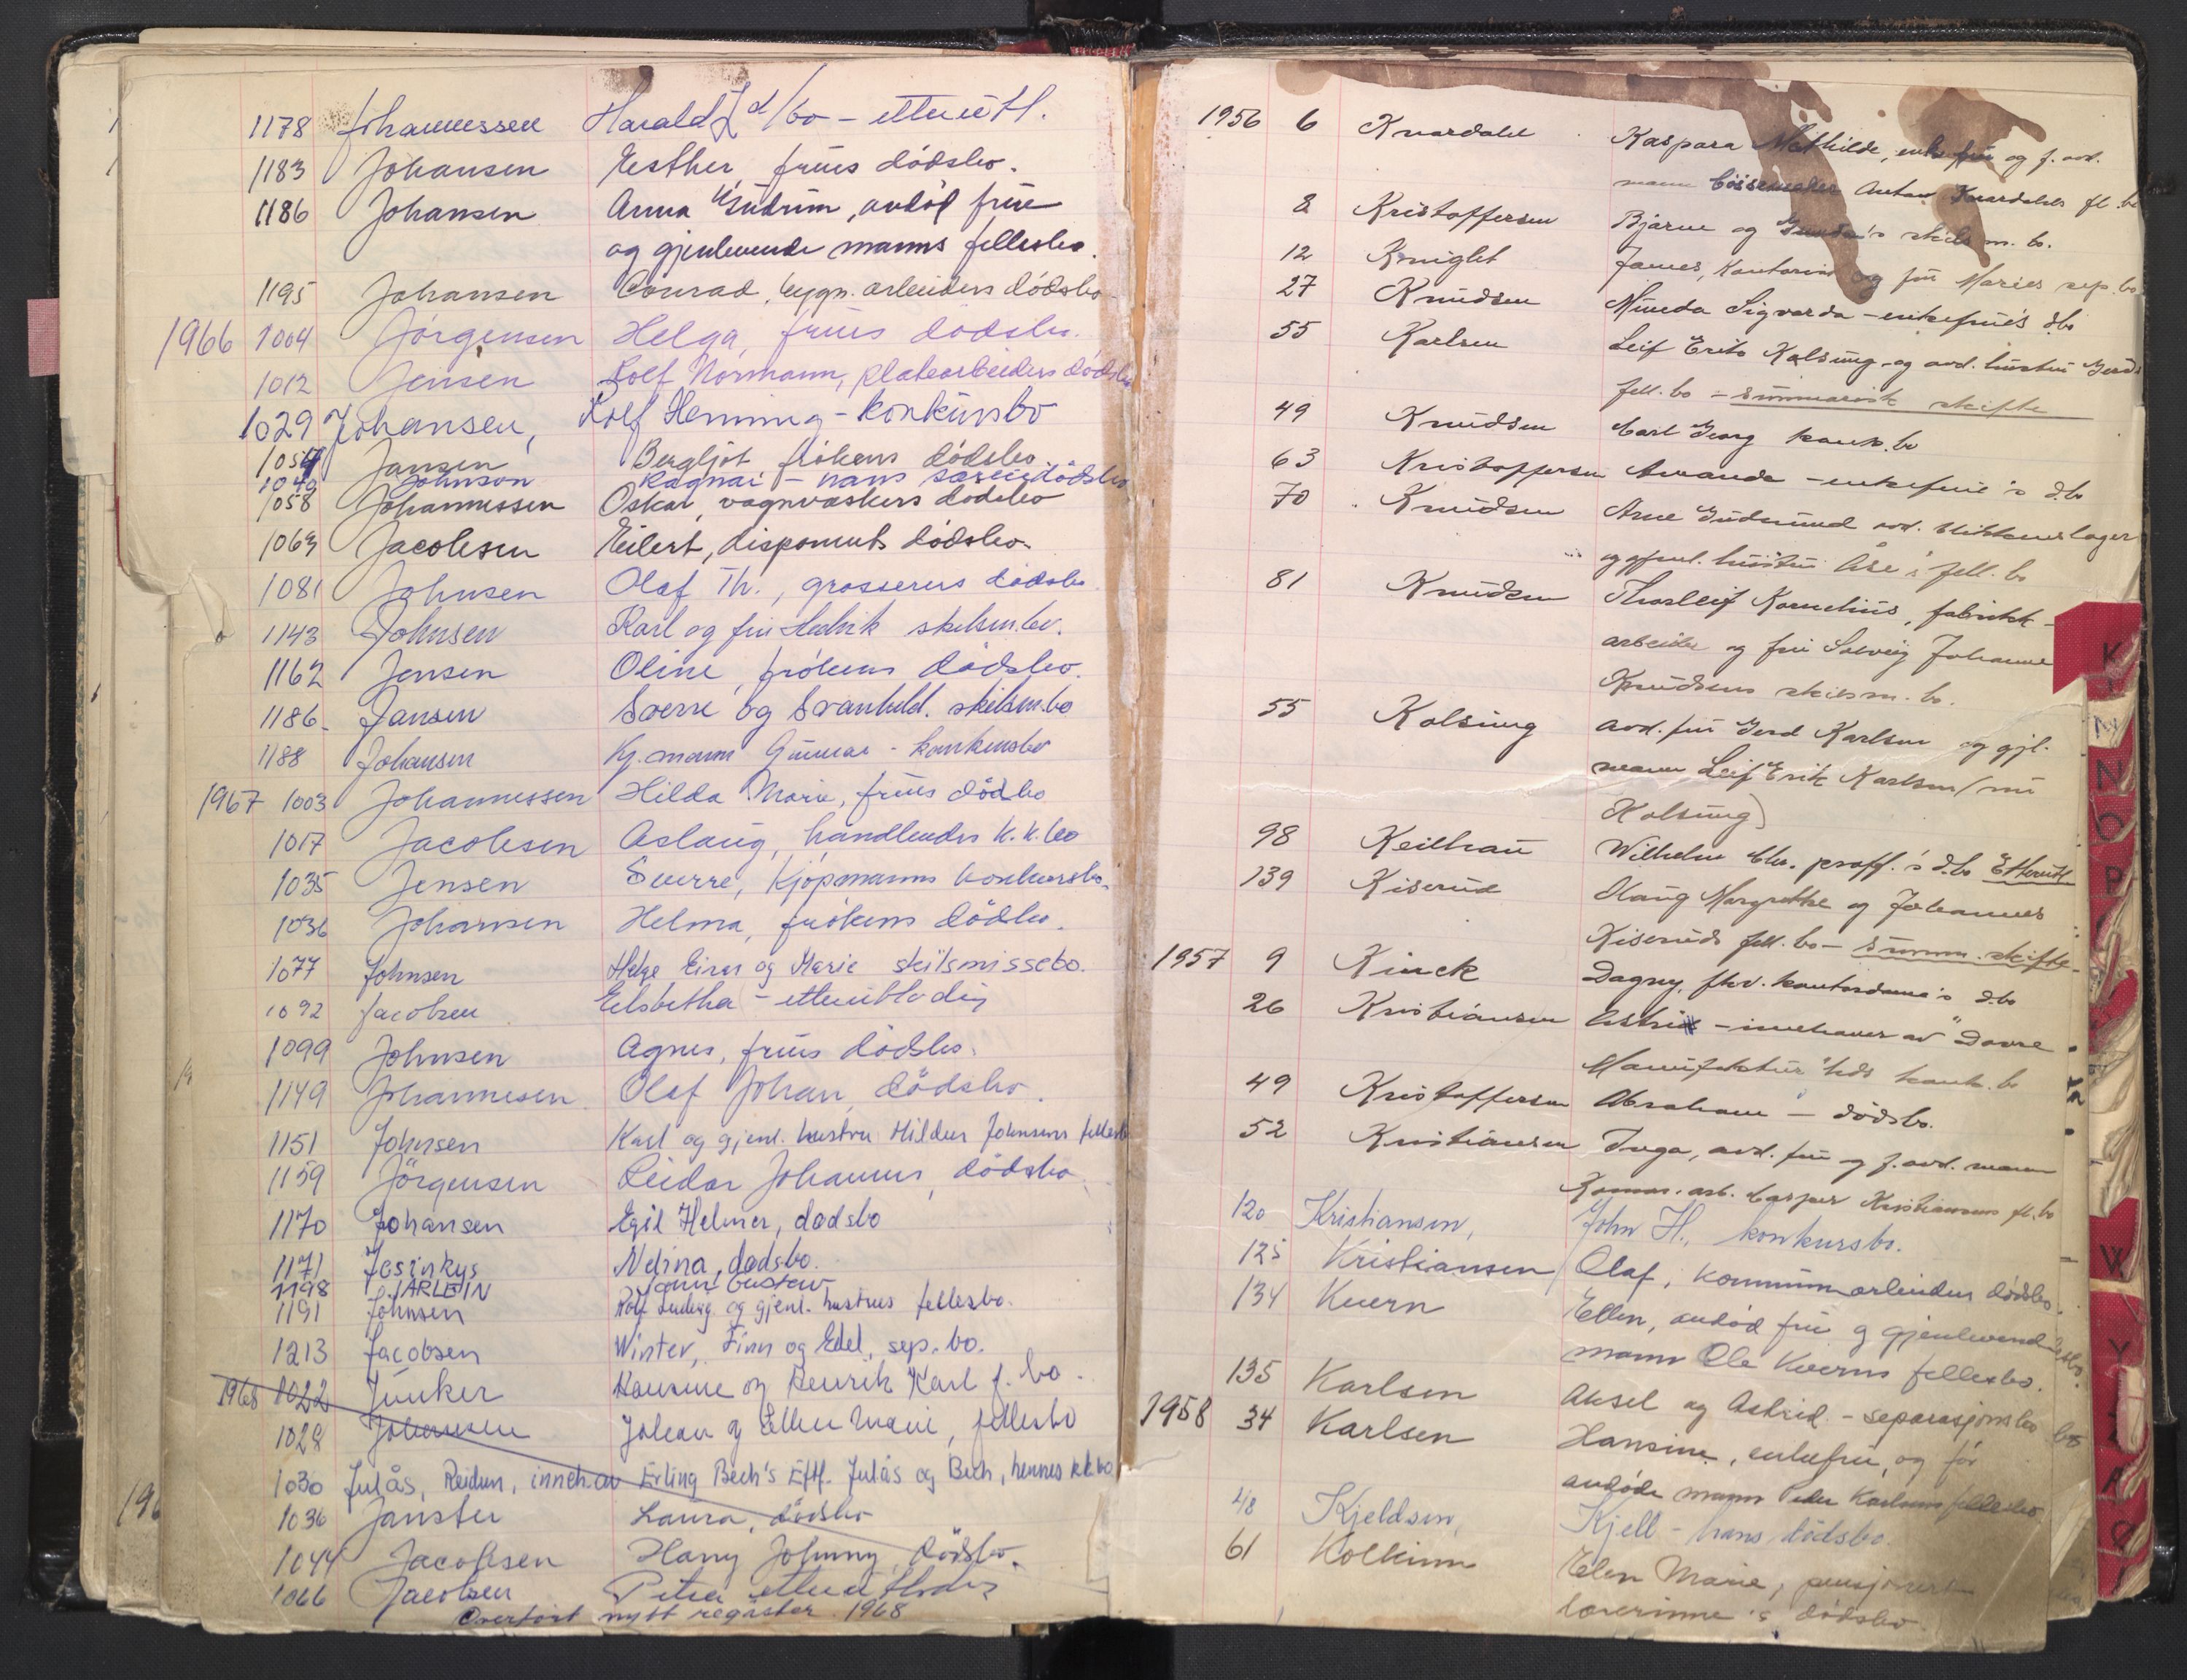 1178 Johannessen Harald Z d/bo - etterutl.
1183 Johansen Esther, frues dödsbo.
1186 Johansen Anna Gudrun, avdøl frue
og gjenlevende manns fellesbo.
1195 Johansen Conrad, bygn. arbeiders dödsbo
1966 1004 Jörgensen Helga, frues dödsbo.
1012 Jensen Rolf Normann, platearbeiders dödsbo
1029 Johansen, Rolf Henning - konkursbo
1054 Jansen Bergljot frökens dödsbo.
1049 Johnson Ragnar - hans særeiedödsbo
1058 Johannessen Oskar, vognvaskers dödsbo
1063 Jacobsen Eilert, disponents dödsbo.
1081 Johnsen Olaf Th., grosserers dödsbo.
1143 Johnsen Karl og fru Hedvik skilsm.bo.
1162 Jensen Oline, frökens dödsbo.
1186 - Jansen Sverre og Svanhild. skilsm.bo
1188 Johansen Kj.mann Gunnar - konkursbo
1967 1003 Johannessen Hilda Marie, frues dödsbo
1017 Jacobsen Aslaug, handlendes k.k.bo
1035 Jensen Sverre, Kjöpmanns konkursbo.
1036 Johansen Helma, frökens dödsbo.
1077 Johnsen Helge Einar og Marie skilsmissebo.
1092 Jacobsen Elsbetha - etterutlodn
1099 Johnsen Agnes, frues dödsbo.
1149 Johannesen Olaf Johan, dödsbo.
1151 Johnsen Karl og gjenl. hustru Hildur Johnsens fellesb
1159 Jörgensen Leidar Johannes, dödsbo
1170 Johansen Egil Helmer, dødsbo
1171 Jesinkys Nelina, dødsbo.
1198 JARLEIN Gustav
1191 Johnsen Rolf Ludvig og gjenl. hustrus fellesbo.
1213 Jacobsen Winter, Finn og Edel, sep.bo.
1968 1022 Junker og Henrik Karl f. bo.
1028 Johansen Johan og Ellen Marie, fellesbo
1030 Julås, Reidun, inneh.av Erling Bech's Eftf. Julås og Bech, hennes k.k.bo.
1036 Janster Laura, dödsbo
1044 Jacobsen Harry Johnny, dödsbo.
1066 Jacobsen Petra etterutlodn
Overført nytt register 1968
1956 6 Knardahl Kaspara Mathilde, enkefru og f. avd.
mann bøssemaker Anton Knardahls fl.bo
8 Kristoffersen Bjarne og Gunda's skilsm.bo.
12 Knight James, Kontorist og fru Maries sep.bo
27 Knudsen Munda Sigvarda - enkefrue's d.bo
55 Karlsen Leif Erik Kolsung og avd. hustru Gerds
fell.bo - summarisk skifte
49 Knudsen Carl Georg konk.bo
63 Kristoffersen Amanda - enkefrue's d.bo
70 Knudsen Arne Gudmund avd. blikkenslager
og gjenl. hustru Åse's fell.bo
81 Knudsen Thorleif Kornelius, fabrikk-
arbeider og fru Solveig Johanne
Knudsens skilsm.bo.
55 Kolsung avd. fru Gerd Karlsen og gjl.
mann Leif Erik Karlsen (nu
Kolsung)
98 Keilhau Wilhelm Chr. proff.'s d.bo Etterutl.
139 Kiserud Olaug Margrethe og Johannes
Kiseruds fell.bo - summ. skifte
1957 9 Kinck Dagny, fhv. kontordame's d.bo
26 Kristiansen Astrid - innehaver av "Dovre
Manufaktur" hds konk.bo
49 Kristoffersen Abraham - dödsbo.
52 Kristiansen Inga, avd. fru og f.avd. mann
Komm.arb. Casper Kristiansens fl.bo
120 Kristiansen, John H., konkursbo.
125 Kristiansen Olaf, kommunearbeiders dödsbo.
134 Kvern Ellen, avdöd fru og gjenlevende
mann Ole Kverns fellesbo.
135 Karlsen Aksel og Astrid - separasjonsbo
1958 34 Karlsen Hansine, enkefru, og för
avdöde mann Peder Karlsens fellesbo
48 Kjeldsen, Kjell - hans dödsbo.
61 Kolkinn Elen Marie, pensjonert
lærerinne's dödsbo.
K
N
O
P
W
Y
Z
Æ
Ø